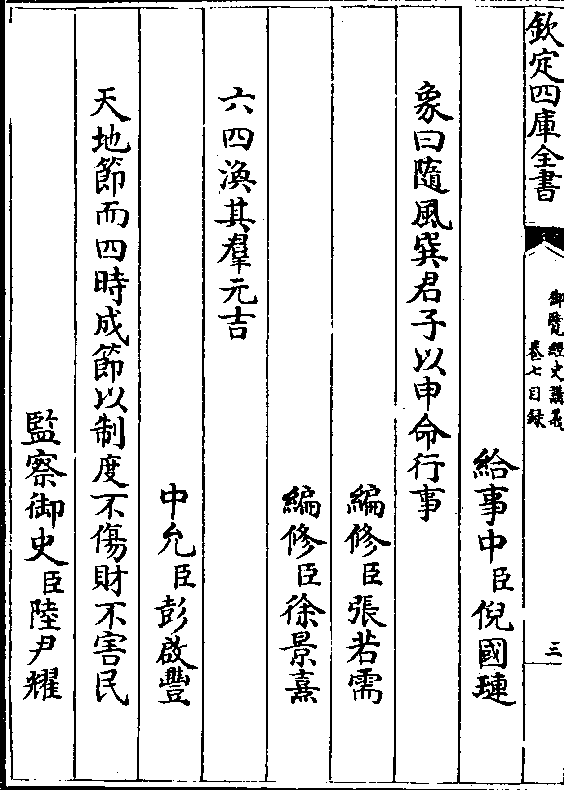 欽定四庫全書
御覽經史講義
卷七目録
三
給事中臣倪國璉
象曰隨風巽君子以申命行事
編修臣張若需
編修臣徐景熹
六四渙其羣元吉
中允臣彭啟豐
天地節而四時成節以制度不傷財不害民
監察御史臣陸尹耀